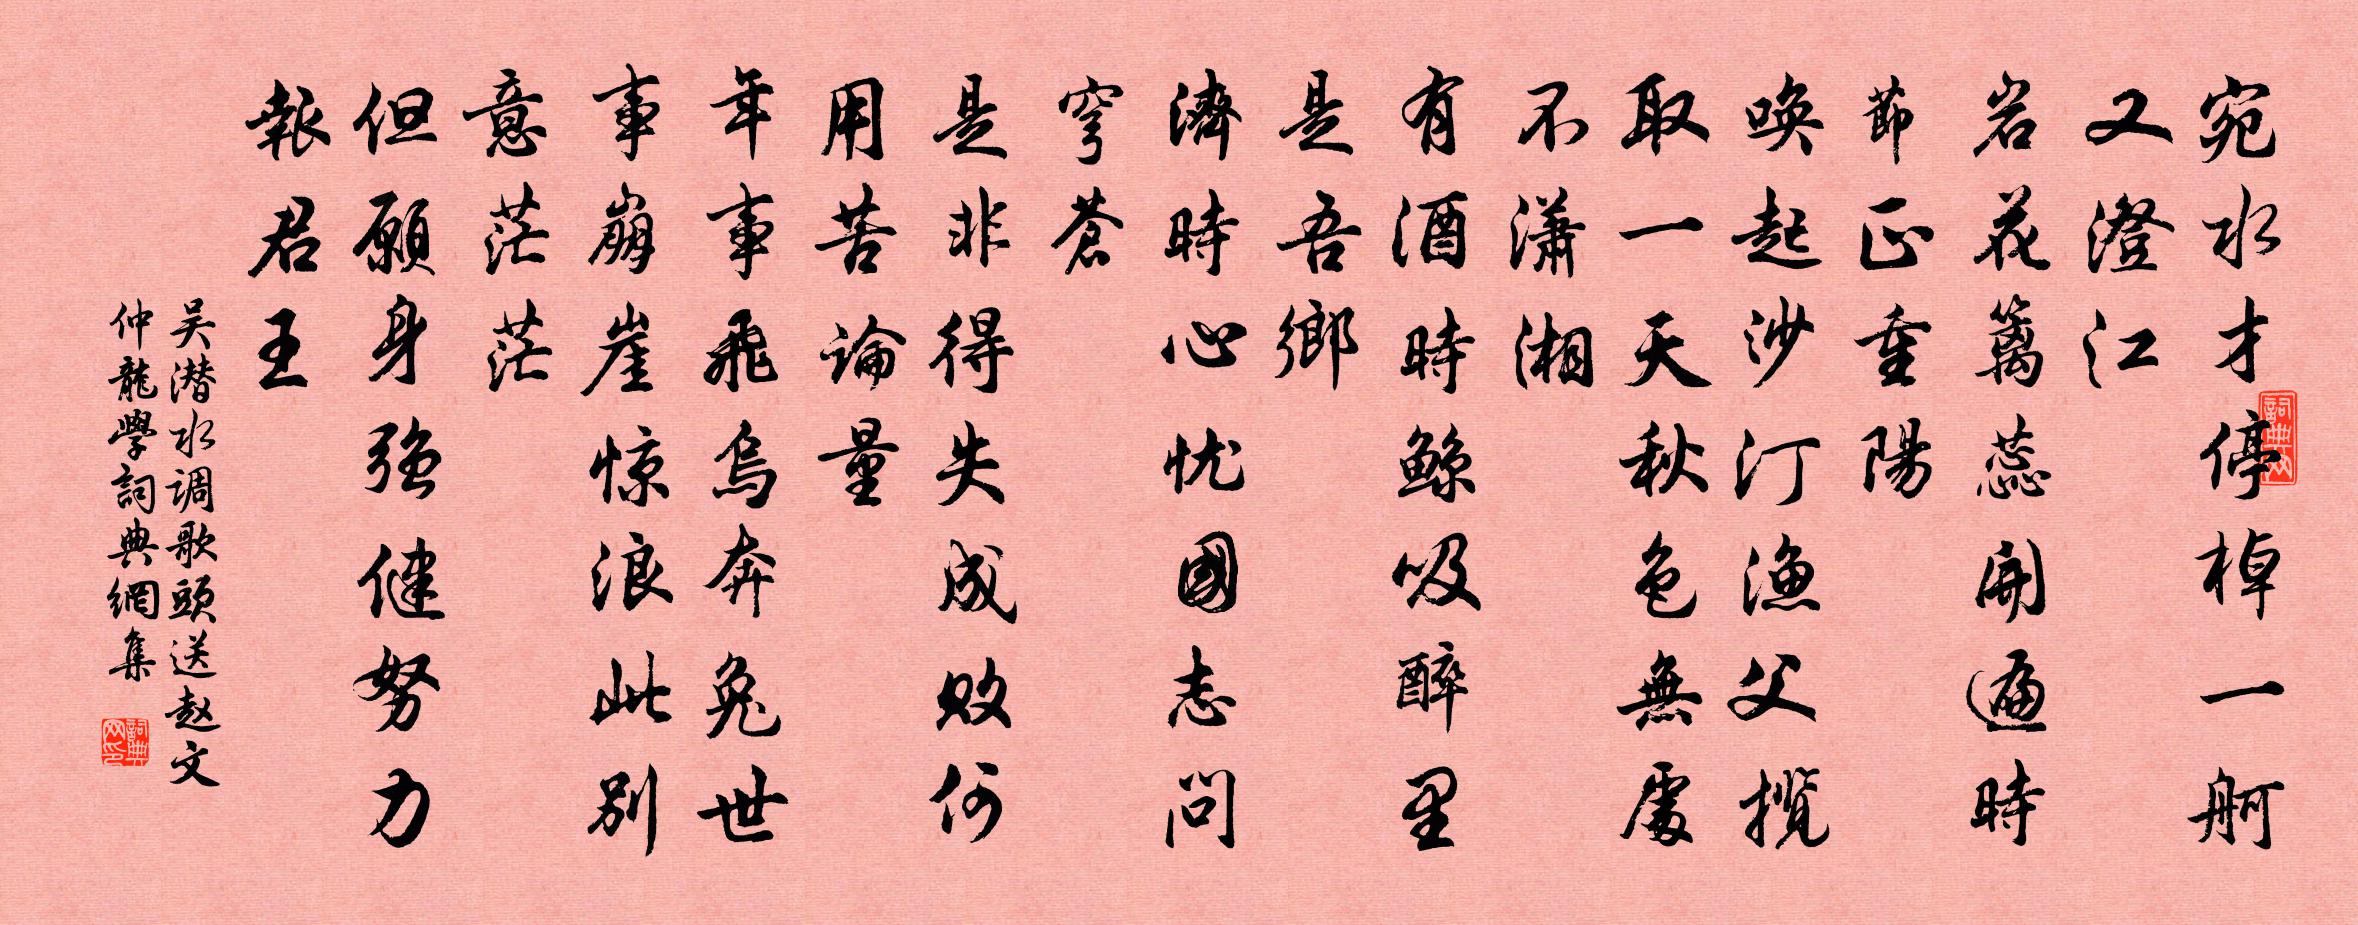 宛水才停棹一舸
又澄江
岩花篱蕊開遍時
節正重陽
唤起沙汀漁父攬
取一天秋色無處
不瀟湘
有酒時鲸吸醉里
是吾鄉
濟時心忧國志問
穹蒼
是非得失成敗何
用苦論量
年事飛烏奔兔世
事崩崖惊浪此别
意茫茫
但願身强健努力
報君王
吴潜水调歌頭送赵文
仲龍學詞典網集